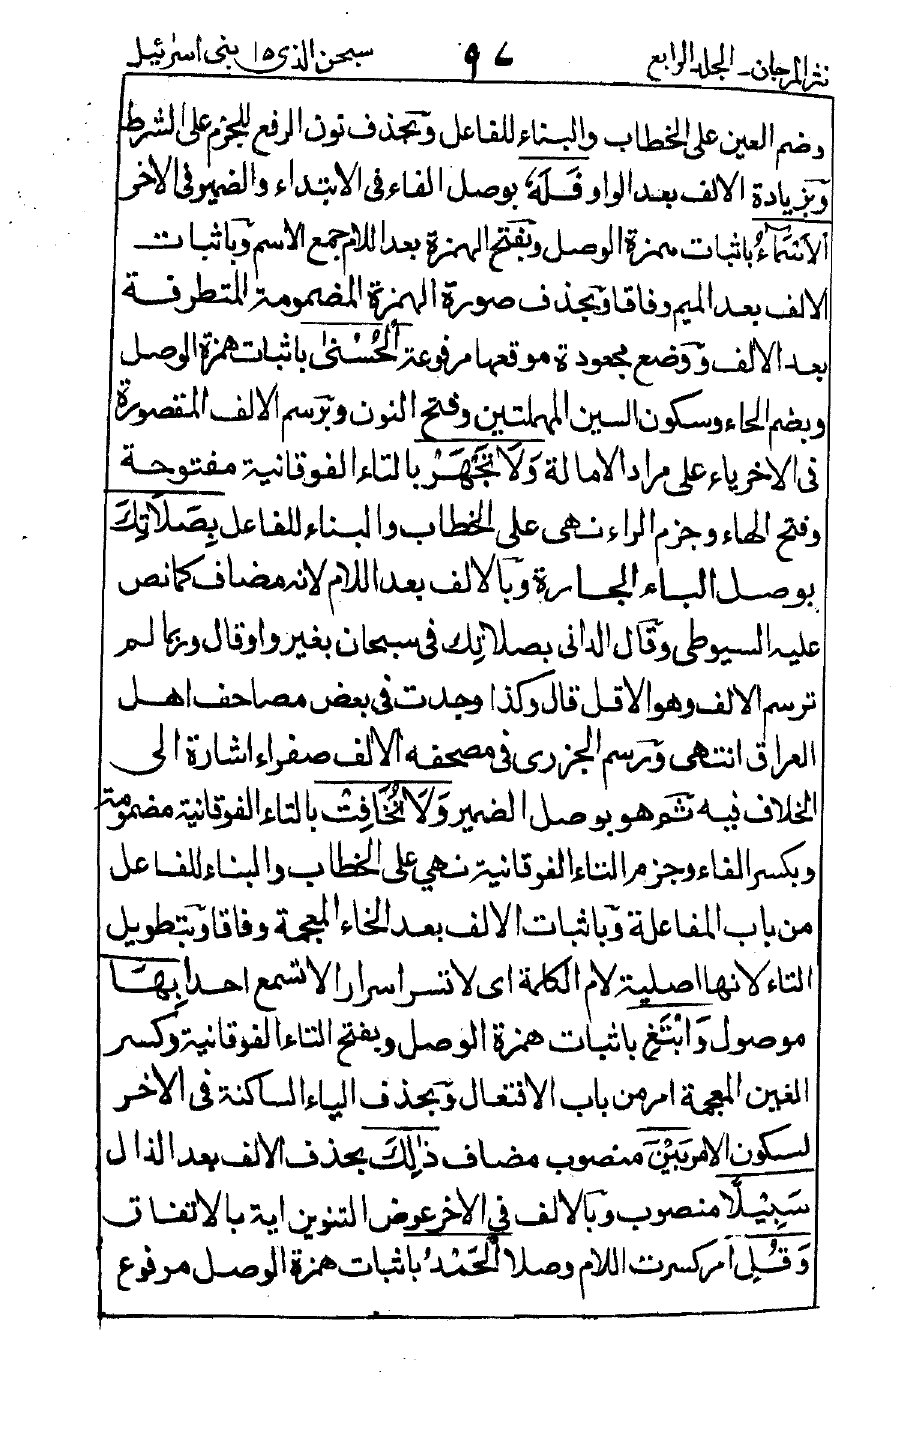 نثر المرجان - الجلد الرابع ٩٧ سبحن الذى ١٥ بنى اسرٰئيل
وضم العين على الخطاب والبناء للفاعل وَبحذف نون الرفع للجزم على الشرط
وَبزيادة الالف بعد الواو فَلَهُ بوصل الفاء فى الابتداء والضمير فى الاخر
الاَسْمَآءُ باثبات همزة الوصل وبفتح الهمزة بعد اللام جمع الاسم وَباثبات
الالف بعد الميم وفاقا وَبحذف صورة الهمزة المضمومة المتطرفة
بعد الالف وَوضع مجعودة موقعها مرفوعة الْحُسْنىٰ باثبات همزة الوصل
وبضم الحاء وسكون السين المهملتين وفتح النون وبرسم الالف المقصورة
فى الاخر ياء على مراد الامالة وَلَا تَجْهَرْ بالتاء الفوقانية مفتوحة
وفتح الهاء وجزم الراء نهى على الخطاب والبناء للفاعل بِصَلَاتِكَ
بوصل الباء الجارة وَبالالف بعد اللام لانه مضاف كما نص
عليه السيوطى وقال الدانى بصلاتك فى سبحان بغير واو قال وربما لم
ترسم الالف وهو الاقل قال وكذا وجدت فى بعض مصاحف اهل
العراق انتهى وَرسم الجزرى فى مصحفه الالف صفراء اشارة الى
الخلاف فيه ثم هو بوصل الضمير وَلَا تُخَافِتْ بالتاء الفوقانية مضمومة
وبكسر الفاء وجزم التاء الفوقانية نهي على الخطاب والبناء للفاعل
من باب المفاعلة وَباثبات الالف بعد الخاء المعجمة وفاقا وَبتطويل
التاء لانها اصلية لام الكلمة اى لا تسر اسرارا لا تسمع احدا بِهَا
موصول وَابْتَغِ باثبات همزة الوصل وبفتح التاء الفوقانية وكسر
الغين المعجمة امر من باب الافتعال وَبحذف الياء الساكنة فى الاخر
لسكون الامر بَيْنَ منصوب مضاف ذٰلِكَ بحذف الالف بعد الذال
سَبِيْلًا منصوب وَبالالف في الاخر عوض التنوين اية بالاتفاق
وَقُلِ امر كسرت اللام وصلا الْحَمْدُ باثبات همزة الوصل مرفوع